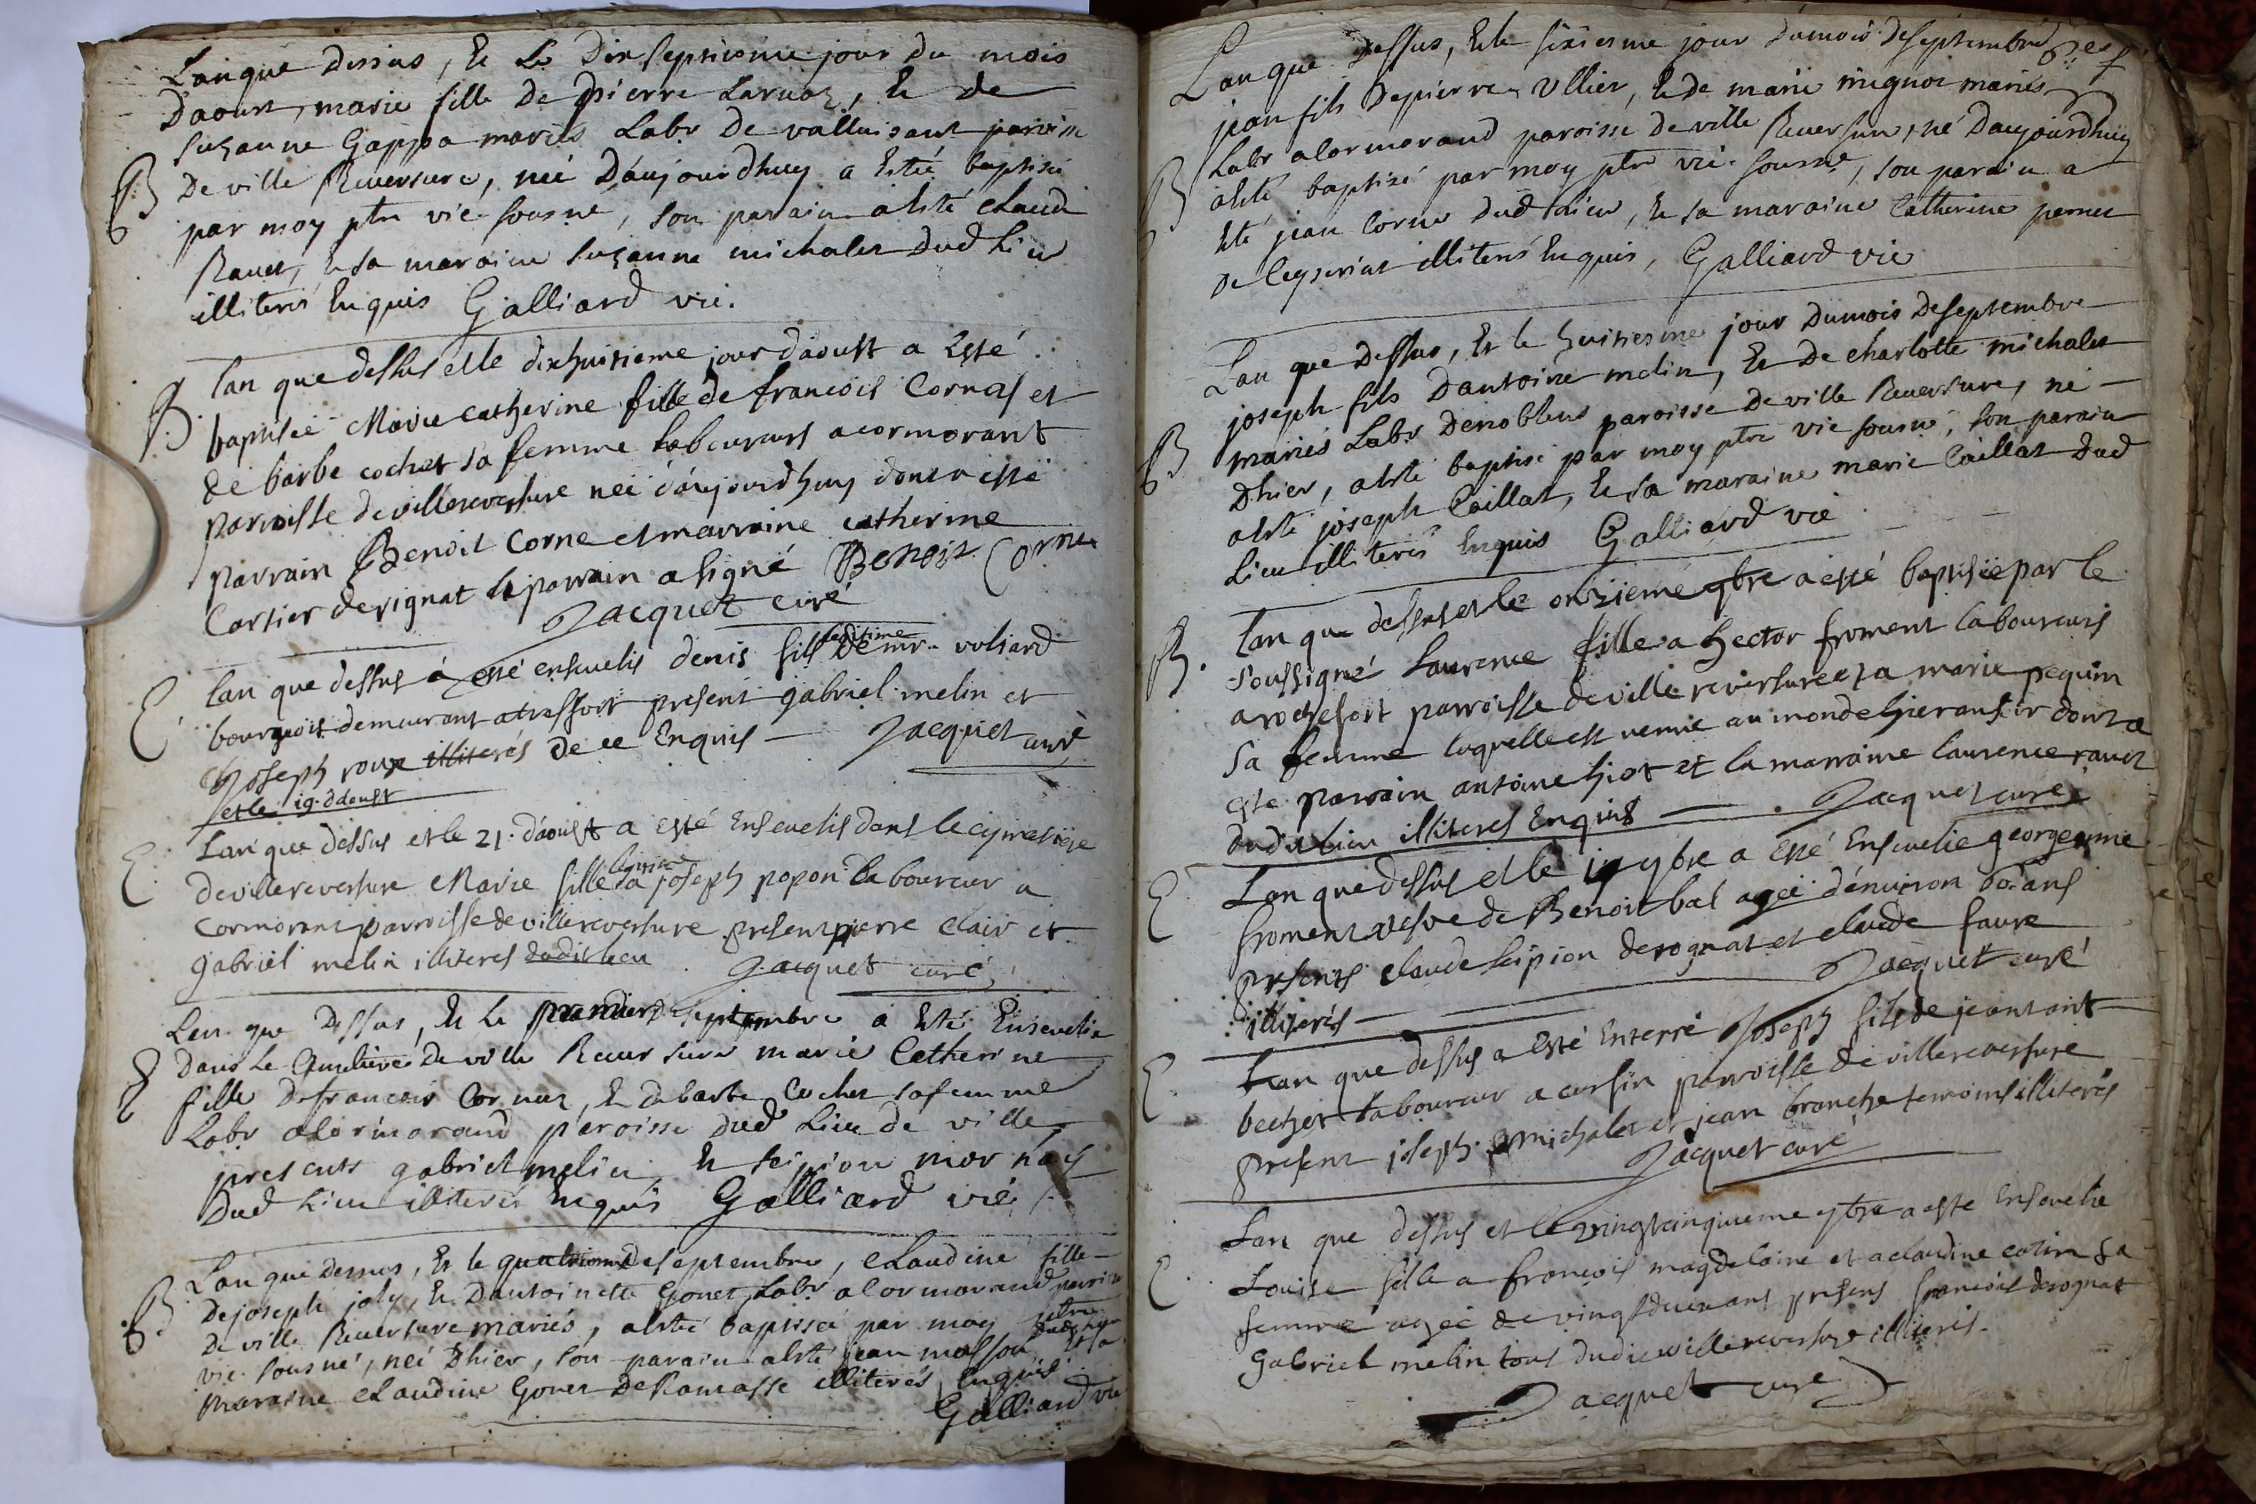 Lan que dessus, Et Le Dix septiesme jour du mois
Daoust, marie fille De pierre Laruaz, Et de
Suzanne Gappa mariés Labr De valluisant paroisse
B De ville Reuersure, née Daujourdhuy a Esté baptisée
par moy ptre vic. sousné, son parain a Esté claude
Rauet, Et sa maraine Suzanne michalet dud Lieu
illiterés Enquis Galliard vic.
B. lan que dessus et le dixhuitieme jour daoust a Esté
baptisée Marie Catherine fille de francois Cornas et
de barbe cochet sa femme laboureurs a cormorant
parroisse de villereversure née daujourdhuy dont a esté
parrain Benoit Corne et marraine catherine
Cartier de rignat le parrain a signé Benoit Corne
Jacquet curé
E lan que dessus a esté enseuelis denis fils legitime de mr. voliard
bourgeois demeurant a treffort present gabriel melin et
Joseph roux illiterés de ce Enquis — Jacquet curé
et le 19. daoust
E Lan que dessus et le 21. daoust a esté Enseuelis dans le cymetiere
de villereversure Marie fille legitime a joseph popon laboureur a
cormorant parroisse de villereversure present pierre clair et
gabriel melin illiteres dudit lieu Jacquet curé
Lan que dessus, Et Le premier de septembre a Esté Enseuelie
E dans Le Cimetiere de ville Reuersure marie Catherine
fille de francois Cornas, Et de barbe Cochet sa femme
Labr a Cormorand paroisse dud Lieu de ville
presents gabriel melin, Et scipion mornay
Dud Lieu illiterés Enquis Galliard vic.
Lan que dessus, Et le quatriesme de septembre, claudine fille
B. De joseph joly, Et Dantoinette Gonet Labr a Cormorand paroisse
De ville Reuersure mariés, a Esté baptisée par moy ptre
vic. sousné, née Dhier, son parain a Esté jean masson dud lieu Et sa
maraine claudine Gonet De Ramasse illiterés Enquis
Galliard vic
Lan que dessus, Et le sixiesme jour du mois de septembre
jean fils De pierre Ullier, Et de marie mignot mariés
Labr a Cormorand paroisse de ville Reuersure, né Daujourdhuy
B a Esté baptizé par moy ptre vic. sousné, son parain a
Esté jean Corne dud Lieu, Et sa maraine Catherine pernet
De Ceyseriat illiterés Enquis, Galliard vic
Lan que dessus, Et le huitiesme jour du mois De septembre
joseph fils Dantoine melin, Et De charlotte michalet
B mariés Labr De noblens paroisse de ville Reuersure, né
Dhier, a Esté baptisé par moy ptre vic sousné, son parain
a Esté joseph Caillat, Et sa maraine marie Caillat dud
Lieu illiterés Enquis Galliard vic
B. lan que dessus et le onzieme 7bre a esté baptisée par le
soussigné laurence fille a hector froment laboureurs
a rochefort parroisse de villereversure et a marie pequin
sa femme laquelle est venue au monde hier au soir dont a
este parrain antoine hiot et la marraine laurence rauet
dudit lieu illiteres Enquis — Jacquet curé
E Lan que dessus et le 19 7bre a esté Enseuelie georgeanne
froment vesve de Benoit bal agée denuiron 60. ans
presents claude scipion derognat et claude faure
illiterés — Jacquet curé
E lan que dessus a esté Enterré Joseph fils de jean ant
bechet laboureur a cursin parroisse de villereversure
present joseph michalet et jean branche temoins illiterés
Jacquet curé
E Lan que dessus et le vingtcinquieme 7bre a este Enseuelie
Louise fille a francois magdelaine et a claudine catin sa
femme agée de vingtdeux ans presens francois derognat
gabriel melin tous dudit villereversure illiterés.
Jacquet cure